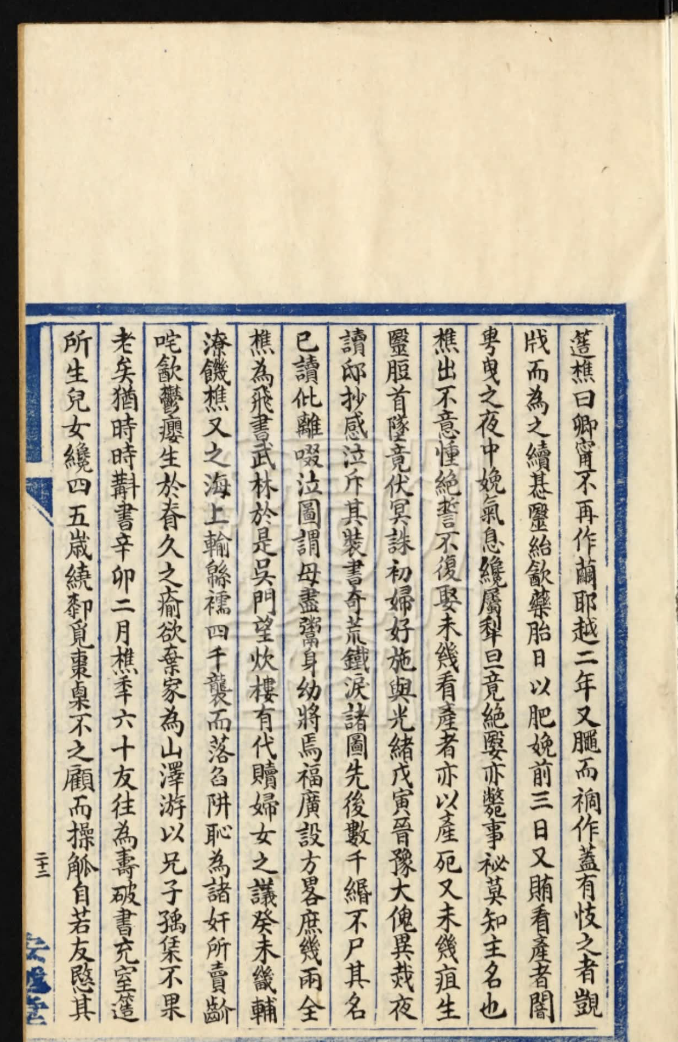 簉樵曰卿甯不再作繭耶越二年又䏿而禍作蓋有忮之者覬
戕而為之續惎毉紿飲藥胎日以肥娩前三日又賄看產者闇
甹曳之夜中娩氣息纔屬犁旦竟絕嬰亦斃事祕莫知主名也
樵出不意慟絕誓不復娶未幾看產者亦以產死又未幾疽生
毉脰首墜竟伏冥誅初婦好施與光緒戊寅晉豫大傀異烖夜
讀邸抄感泣斥其裝書奇荒鐵淚諸圖先後數千緡不尸其名
已讀仳離啜泣圖謂母盡鬻身幼將焉福廣設方畧庶幾兩全
樵為飛書武林於是吳門望炊樓有代贖婦女之議癸未畿輔
潦饑樵又之海上輸緜襦四千襲而落臽阱恥為諸奸所賣齡
咤飲鬱癭生於脊久之瘉欲棄家為山澤游以兄子孱栞不果
老矣猶時時斠書辛卯二月樵秊六十友往為壽破書充室簉
所生兒女纔四五嵗繞厀覓棗㮚不之顧而操觚自若友愍其
二十二